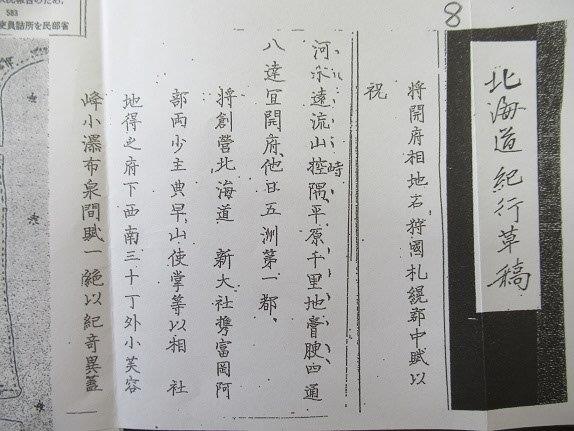 8
北海道紀行草稿
將開府相地石狩國札縨郡中賦以
祝
峙
河水遠流山控隅、平原千里地膏腴四通
八達宜開府、他日五洲第一都、
將創營北海道 新大社携富岡阿
部兩少主典早山使掌等以相 社
地得之府下西南三十丁外小芙容
峰小瀑布泉間賦一絶以紀奇異蓋
報告のため,
583
使員詰所を民部省